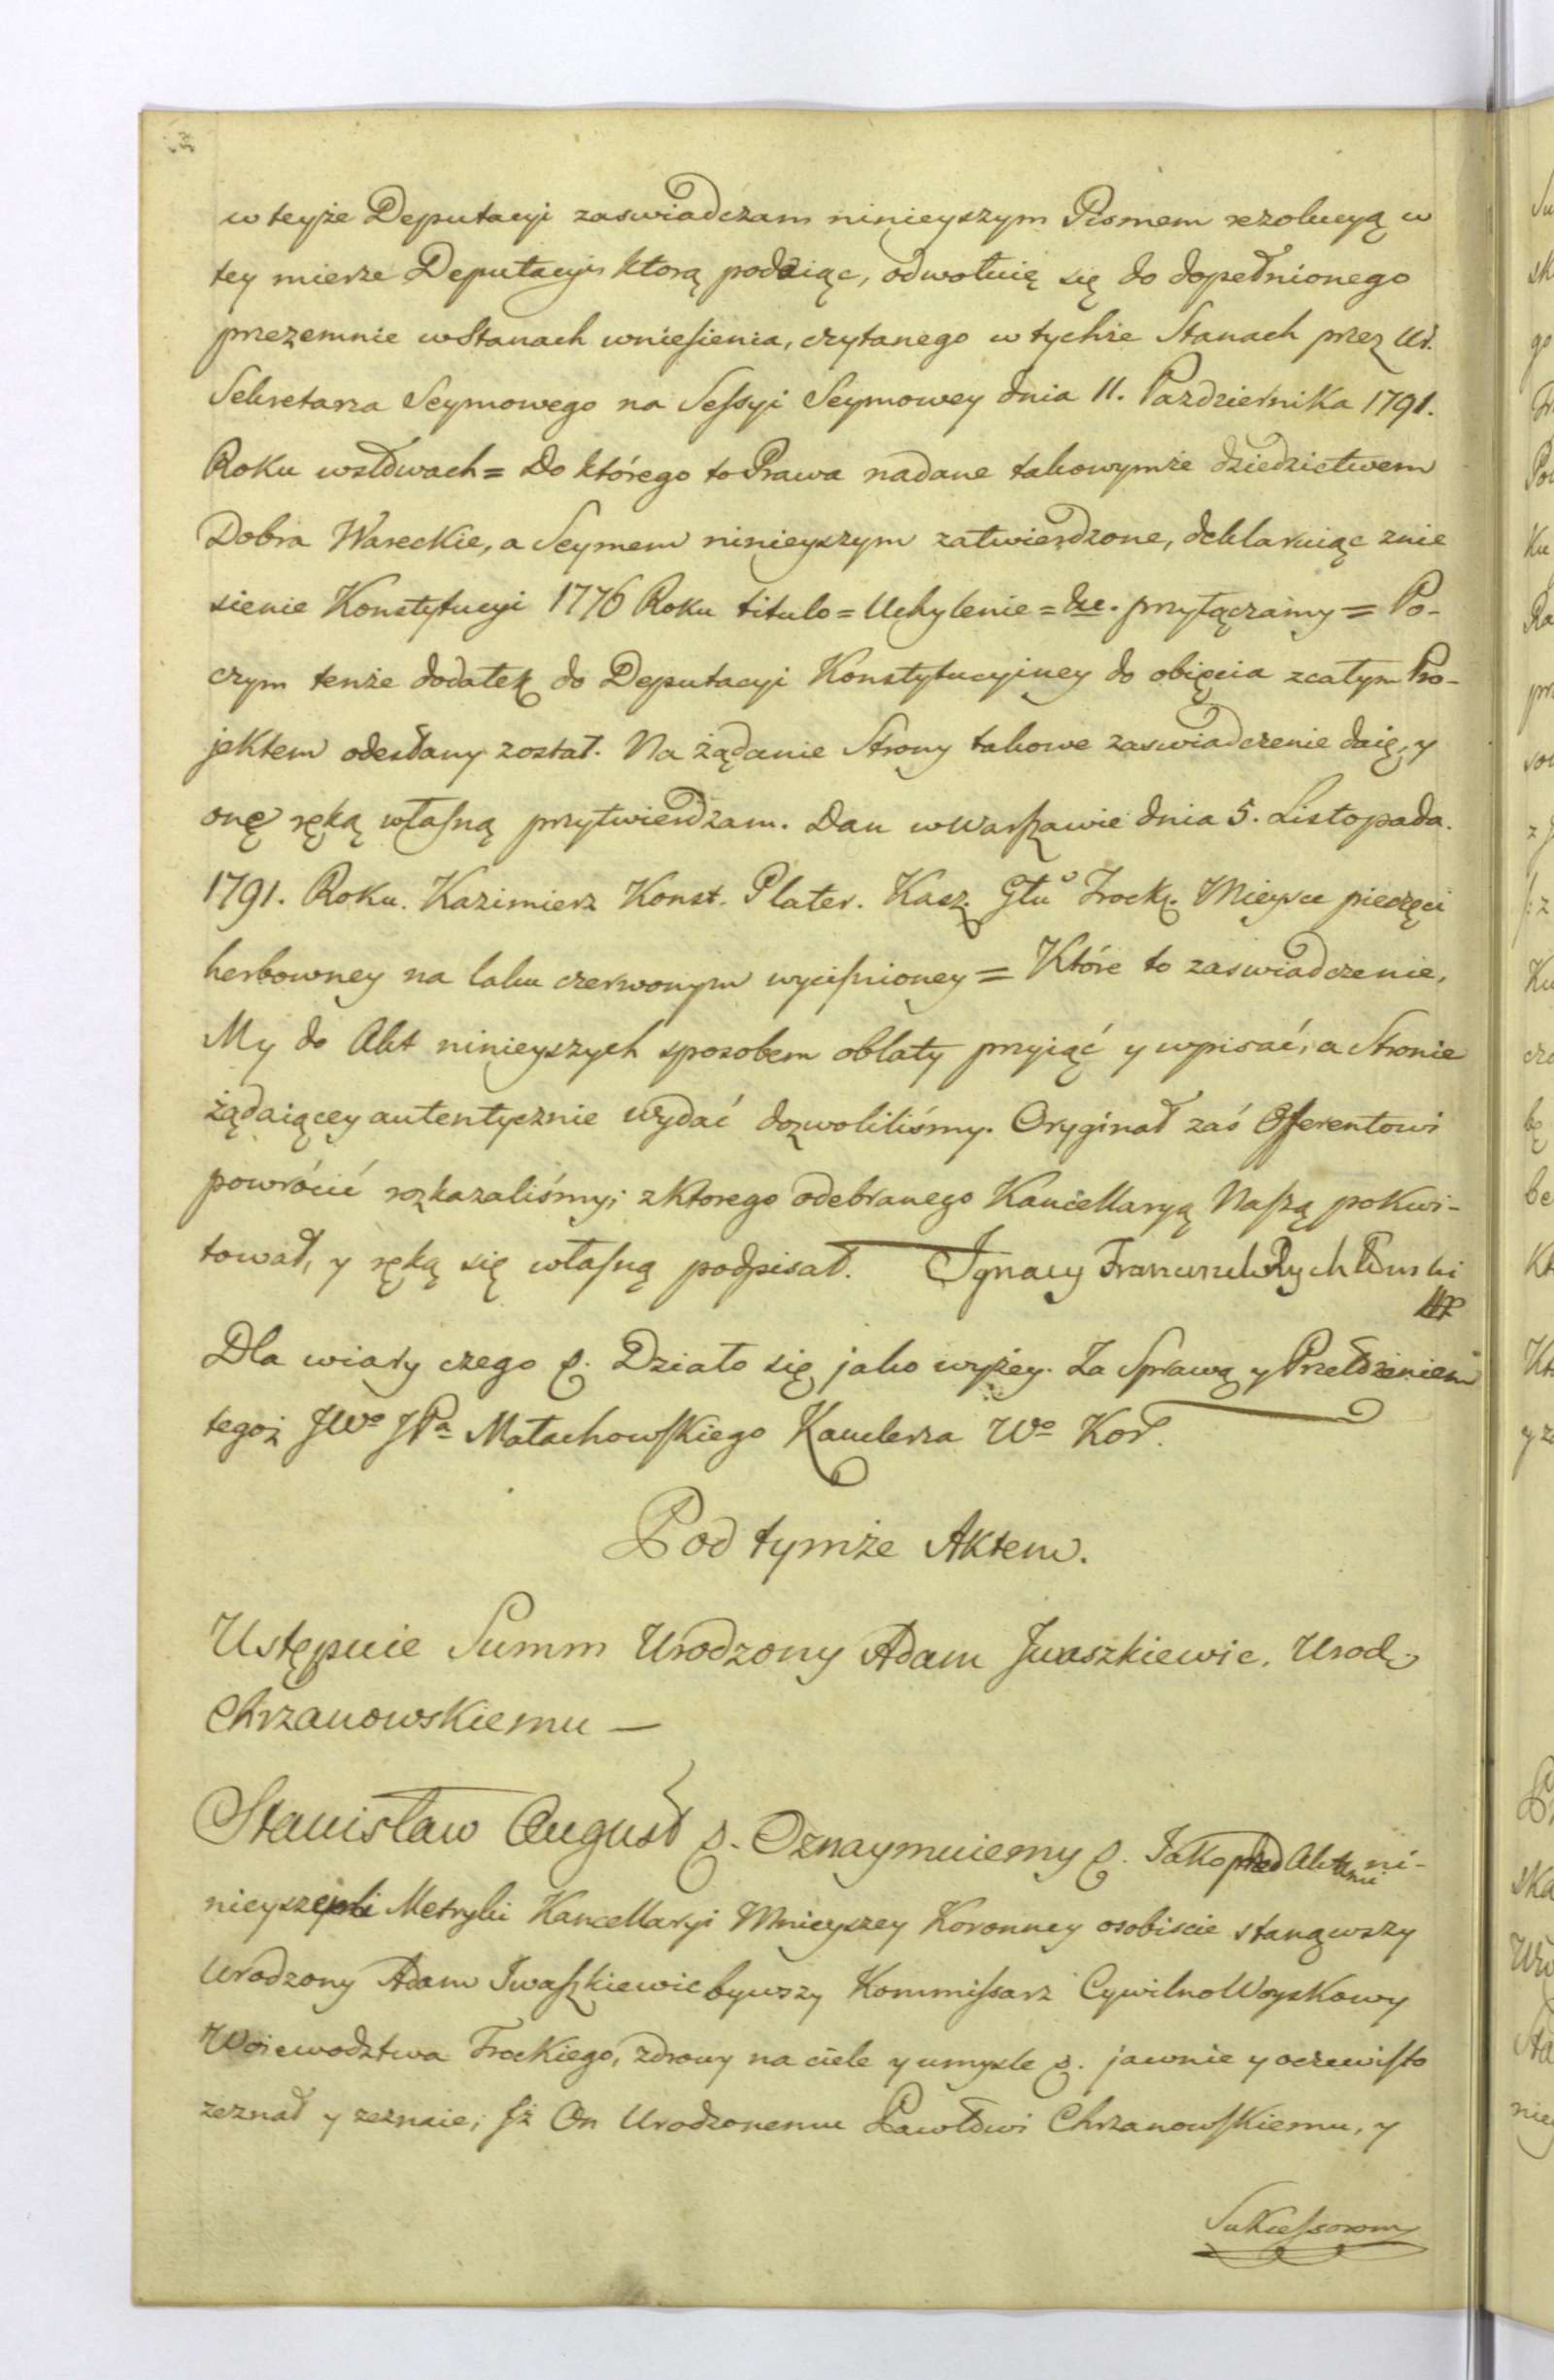 w teyże Deputacyi zaswiadczam ninieyszym Pismem rezolucyą w
tey mierze Deputacyi ktorą podaiąc, odwołuię się do dopełnionego
przezemnie w Stanach wniesienia, czytanego w tychże Stanach przez Ur.
Sekretarza Seymowego na Sessyi Seymowey dnia 11. Pazdziernika 1791.
Roku w słowach = Do którego to Prawa nadane takowymże dziedzictwem
Dobra Wareckie, a Seymem ninieyszym zatwierdzone, deklaruiąc znie
sienie Konstytucyi 1776 Roku titulo = Uchylenie = &c. przyłączamy = Po-
czym tenże dodatek do Deputacyi Konstytucyiney do obięcia z całym Pro-
jektem odesłany został. Na żądanie Strony takowe zaswiadczenie daię, y
onę ręką własną przytwierdzam. Dan w Warszawie dnia 5. Listopada.
1791. Roku. Kazimierz Konst. Plater. Kasz. Głu Trock. Mieysce pieczęci
herbowney na laku czerwonym wycisnioney = Które to zaswiadczenie,
My do Akt ninieyszych sposobem oblaty przyiąć y wpisać, a Stronie
żądaiącey autentycznie wydać dozwoliliśmy. Oryginał zaś Offerentowi
powrócić rozkazaliśmy; z ktorego odebranego Kancellaryą Naszą pokwi-
tował, y ręką się własną podpisał. Ignacy Franciszek Rychłowski
Dla wiary czego &. Działo się jako wyżey. Za Sprawą y Przełożeniem
tegoż JWo JPa Małachowskiego Kanclerza Wo Kor.
Pod tymże Aktem.
Ustępuie Summ Urodzony Adam Iwaszkiewic. Urod.
Chrzanowskiemu —
Stanisław August &. Oznaymuiemy &. Jako przed Aktami ni-
nieyszemi Metryki Kancellaryi Mnieyszey Koronney osobiscie stanąwszy
Urodzony Adam Iwaszkiewic bywszy Kommissarz Cywilno Woyskowy
Woiewodztwa Trockiego, zdrowy na ciele y umysle &. jawnie y oczewisto
zeznał y zeznaie, Iż On Urodzonemu Pawłowi Chrzanowskiemu, y
Sukcessorom